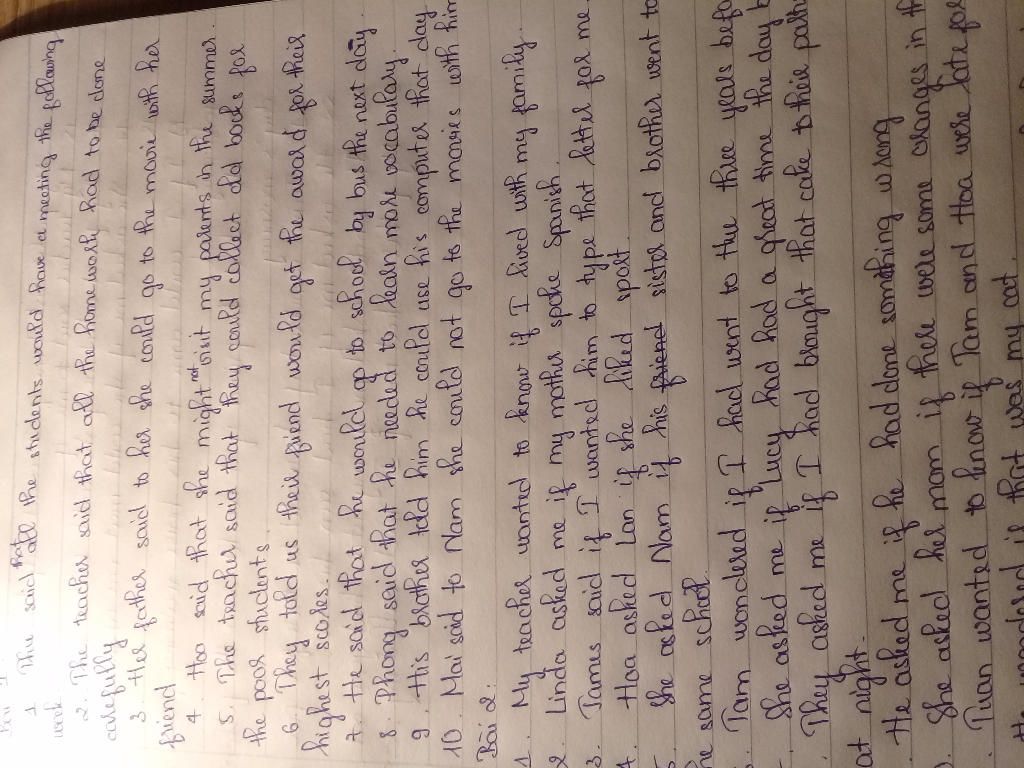 Bài 1
1. Thu said that all the students would have a meeting the following
week
2. The teacher said that all the homework had to be done
carefully
3. Her father said to her she could go to the movie with her
friend
4. Hoa said that she might not visit my parents in the summer.
5. The teacher said that they could collect old books for
the poor students
6. They told us their friend would get the award for their
highest scores.
7. He said that he would go to school by bus the next day
8. Phong said that he needed to learn more vocabulary.
9. His brother told him he could use his computer that day
10. Mai said to Nam she could not go to the movies with him
Bài 2:
1. My teacher wanted to know if I lived with my family.
2. Linda asked me if my mother spoke Spanish.
3. James said if I wanted him to type that letter for me.
4. Hoa asked Lan if she liked sport
She asked Nam if his friend sister and brother went to
he same school.
Tam wondered if I had went to the three years befo
She asked me if Lucy had had a great time the day b
They asked me if I had brought that cake to their par
at night.
He asked me if he had done something wrong
She asked her mom if there were some changes in th
Tuan wanted to know if Tam and Hoa were late for
He wondered if that was my cat.